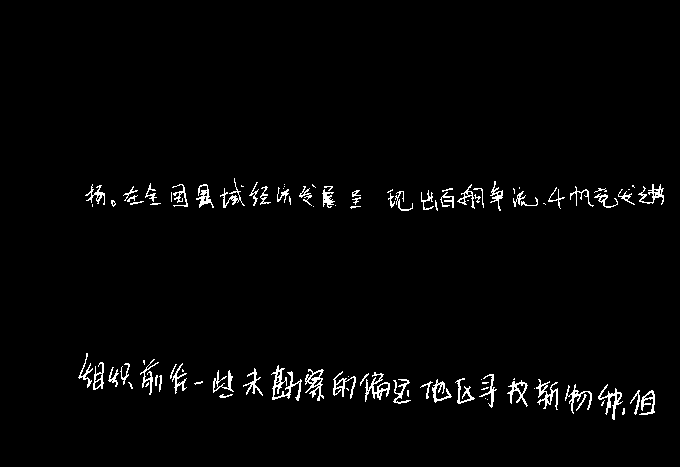 扬。在全国县域经济发展呈现出百舸争流、千帆竞发之势
组织前往一些未勘察的偏远地区寻找新物种,但